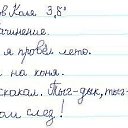 ов Коля 3 "Б"
чинение.
я провёл лето.
л на коня.
скакал. Тыг-дык, тыг-
ом след!